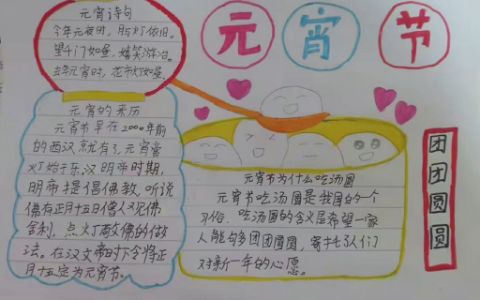 元宵节
元宵诗句
今年元夜时，月与灯依旧。
里千门如昼，嬉笑游冶。
去年元宵时，花市灯如昼。
元宵的来历
元宵节早在2000年前
的西汉就有了，元宵赏
灯始于东汉明帝时期，
明帝提倡佛教，听说
佛有正月十五日僧人观佛
舍利，点灯敬佛的做
法。在汉文帝时下令将正
月十五定为元宵节。
元宵节为什么吃汤圆
元宵节吃汤圆是我国的一个
习俗，吃汤圆的含义是希望一家
人能够多团团圆圆，寄托了人们
对新一年的心愿。
团
团
圆
圆